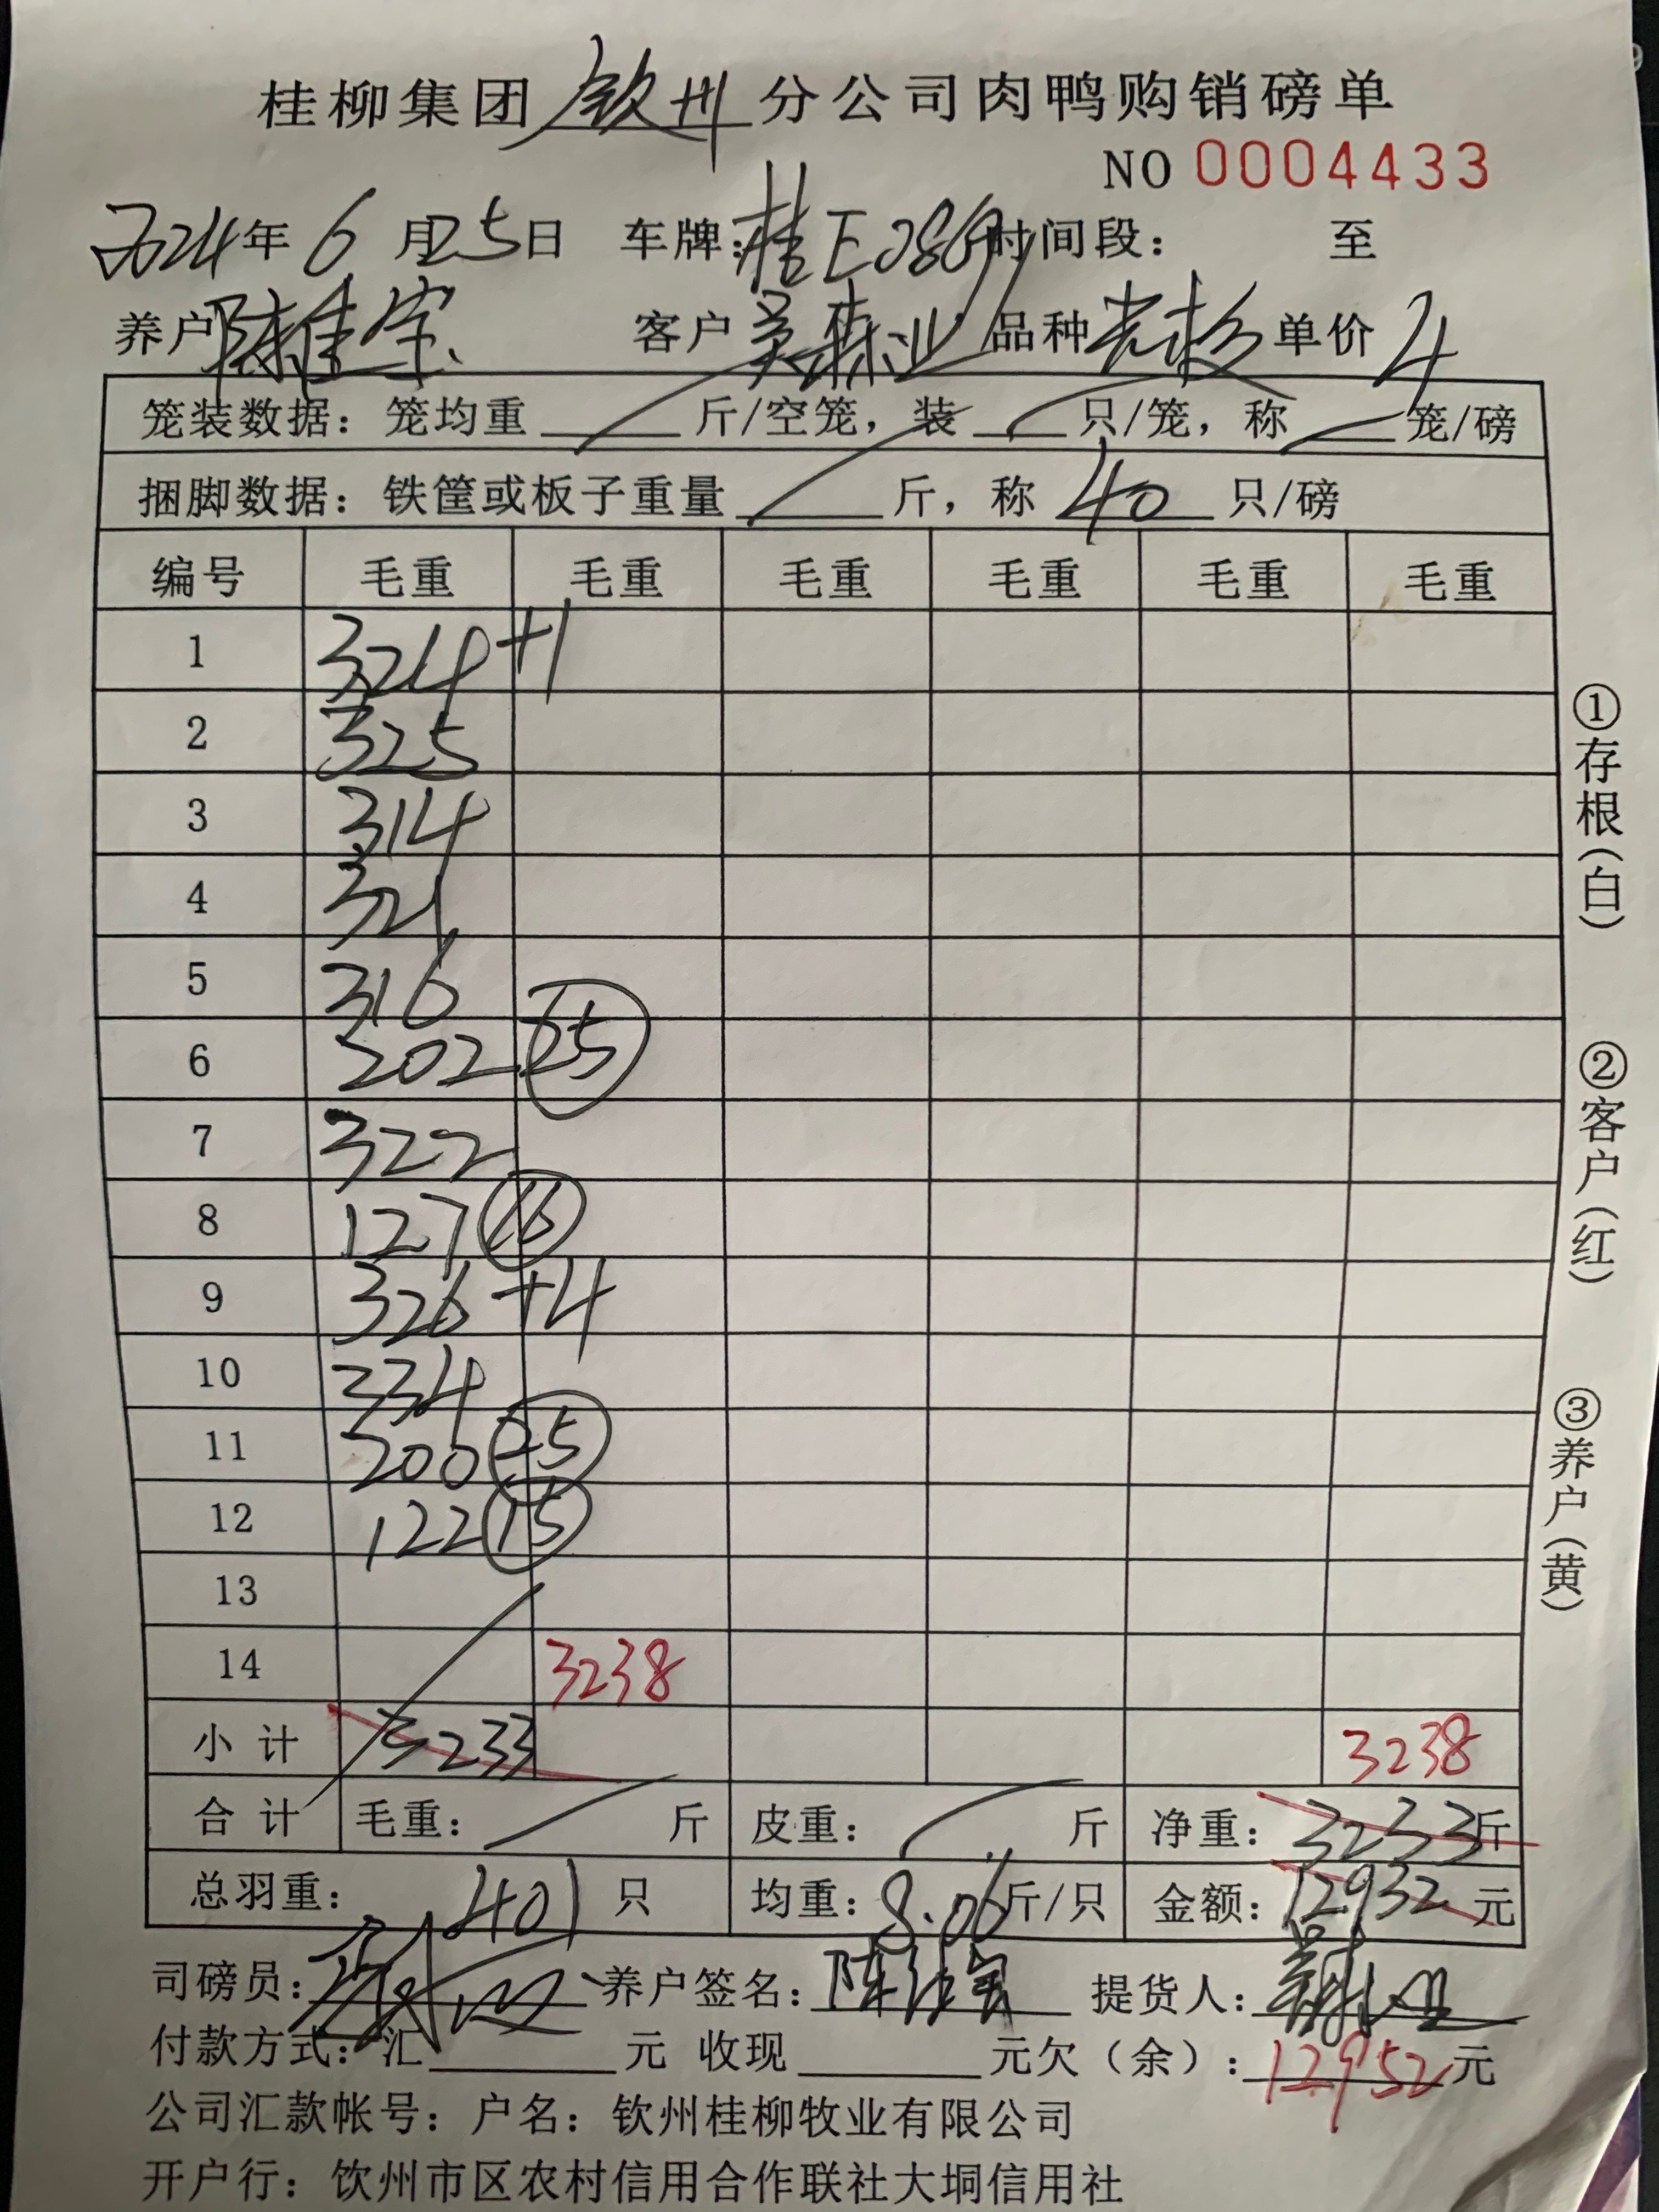 桂柳集团 钦州 分公司肉鸭购销磅单
NO 0004433
2024年 6 月25日 车牌:桂E0869 时间段: 至
养户 陈佳宝 客户 吴森业 品种 光杉 单价 4
笼装数据: 笼均重 斤/空笼, 装 只/笼, 称 笼/磅
捆脚数据: 铁筐或板子重量 斤, 称 40 只/磅
编号 毛重 毛重 毛重 毛重 毛重 毛重
1 324 +1
2 325
3 314
4 321
5 316
6 202 25
7 322
8 127 16
9 326 +4
10 334
11 200 25
12 122 15
13
14 3238
小计 3233 3238
合计 毛重: 斤 皮重: 斤 净重: 3233 斤
总羽重: 401 只 均重: 8.06 斤/只 金额: 12932 元
司磅员: 养户签名: 陈佳宝 提货人: 吴森业
付款方式: 汇 元 收现 元欠(余): 12952 元
公司汇款帐号: 户名: 钦州桂柳牧业有限公司
开户行: 钦州市区农村信用合作联社大垌信用社
①存根(白)
②客户(红)
③养户(黄)